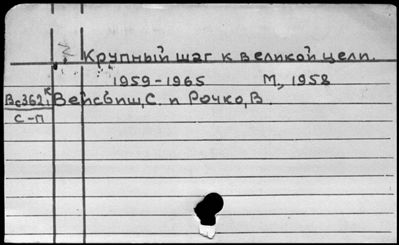 Крупный шаг к великой цели.
1959-1965 М, 1958
Вс362к Вейсвищ, С. и Рочко, В.
С-П